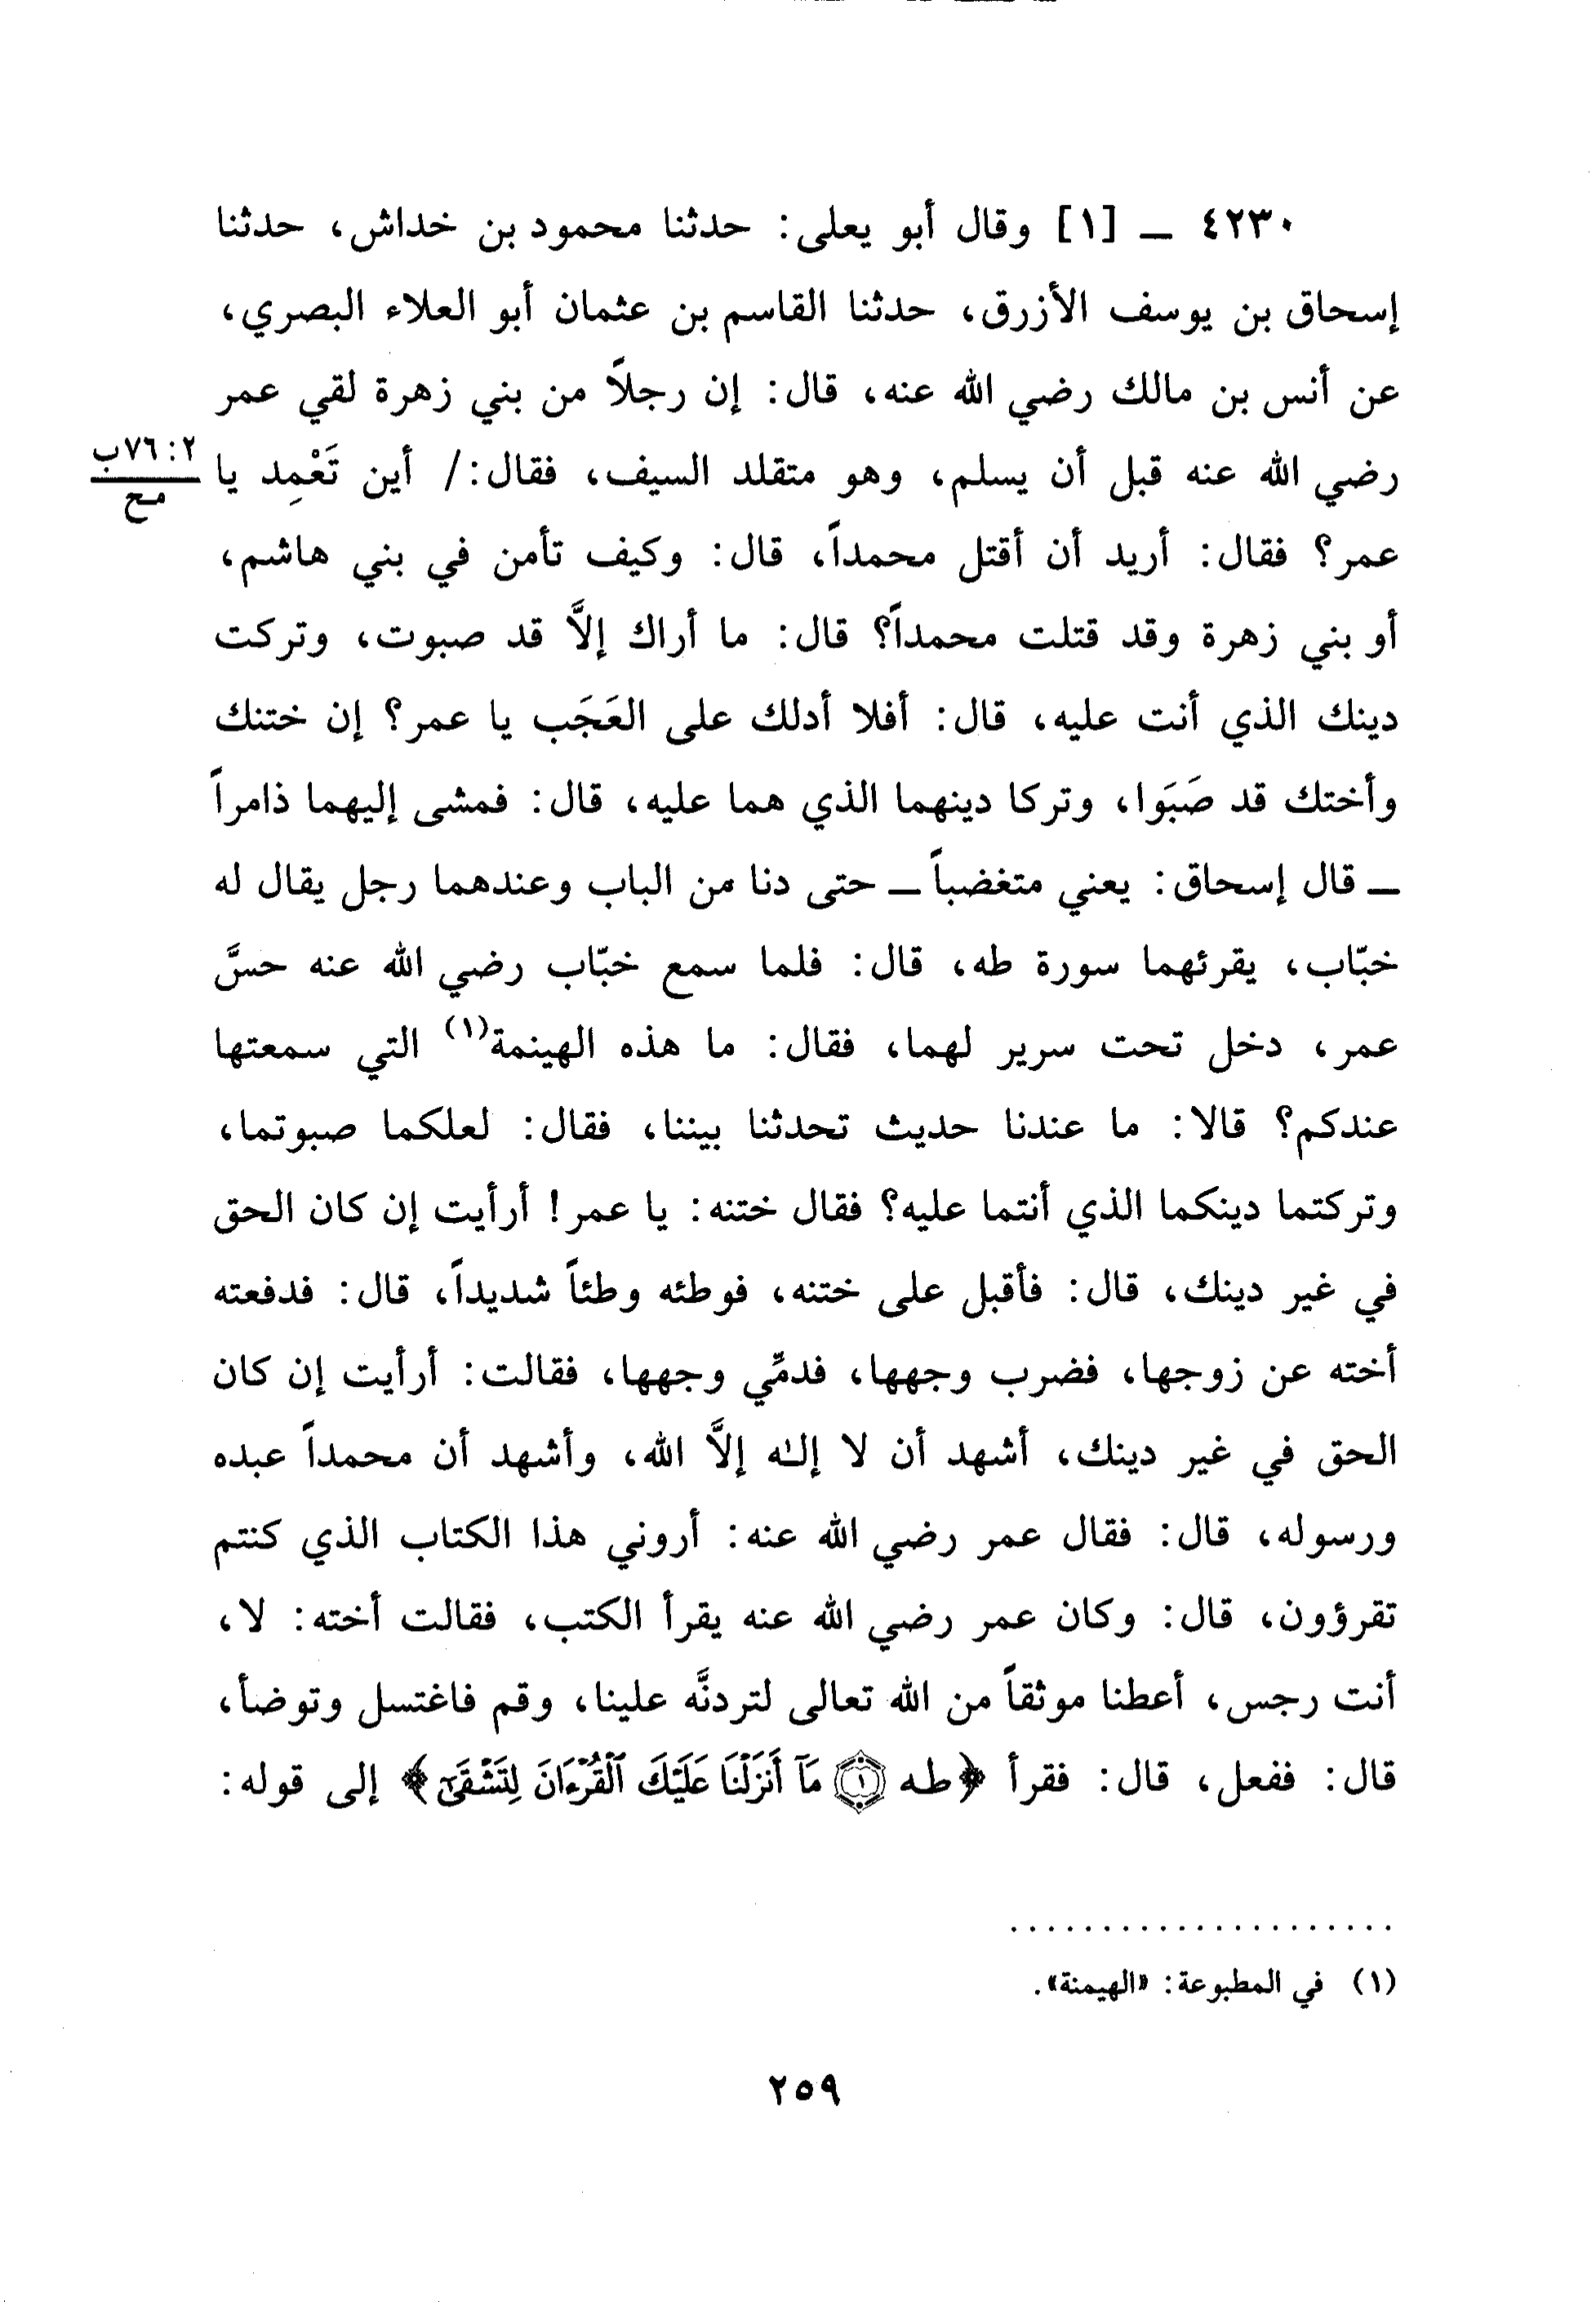 ٤٢٣٠ ــ [١] وقال أبو يعلى: حدثنا محمود بن خداش، حدثنا
إسحاق بن يوسف الأزرق، حدثنا القاسم بن عثمان أبو العلاء البصري،
عن أنس بن مالك رضي الله عنه، قال: إن رجلاً من بني زهرة لقي عمر
رضي الله عنه قبل أن يسلم، وهو متقلد السيف، فقال:/ أين تَعْمِد يا
٢: ٧٦ب
مح
عمر؟ فقال: أريد أن أقتل محمداً، قال: وكيف تأمن في بني هاشم،
أو بني زهرة وقد قتلت محمداً؟ قال: ما أراك إلاَّ قد صبوت، وتركت
دينك الذي أنت عليه، قال: أفلا أدلك على العَجَب يا عمر؟ إن ختنك
وأختك قد صَبَوا، وتركا دينهما الذي هما عليه، قال: فمشى إليهما ذامراً
ــ قال إسحاق: يعني متغضباً ــ حتى دنا من الباب وعندهما رجل يقال له
خبّاب، يقرئهما سورة طه، قال: فلما سمع خبّاب رضي الله عنه حسَّ
عمر، دخل تحت سرير لهما، فقال: ما هذه الهينمة(١) التي سمعتها
عندكم؟ قالا: ما عندنا حديث تحدثنا بيننا، فقال: لعلكما صبوتما،
وتركتما دينكما الذي أنتما عليه؟ فقال ختنه: يا عمر! أرأيت إن كان الحق
في غير دينك، قال: فأقبل على ختنه، فوطئه وطئاً شديداً، قال: فدفعته
أخته عن زوجها، فضرب وجهها، فدمِّي وجهها، فقالت: أرأيت إن كان
الحق في غير دينك، أشهد أن لا إلـٰه إلاَّ الله، وأشهد أن محمداً عبده
ورسوله، قال: فقال عمر رضي الله عنه: أروني هذا الكتاب الذي كنتم
تقرؤون، قال: وكان عمر رضي الله عنه يقرأ الكتب، فقالت أخته: لا،
أنت رجس، أعطنا موثقاً من الله تعالى لتردنَّه علينا، وقم فاغتسل وتوضأ،
قال: ففعل، قال: فقرأ ﴿طه ۝١ مَآ أَنزَلْنَا عَلَيْكَ ٱلْقُرْءَانَ لِتَشْقَىٰٓ﴾ إلى قوله:
. . . . . . . . . . . . . . . . . . . . .
(١) في المطبوعة: «الهيمنة».
٢٥٩